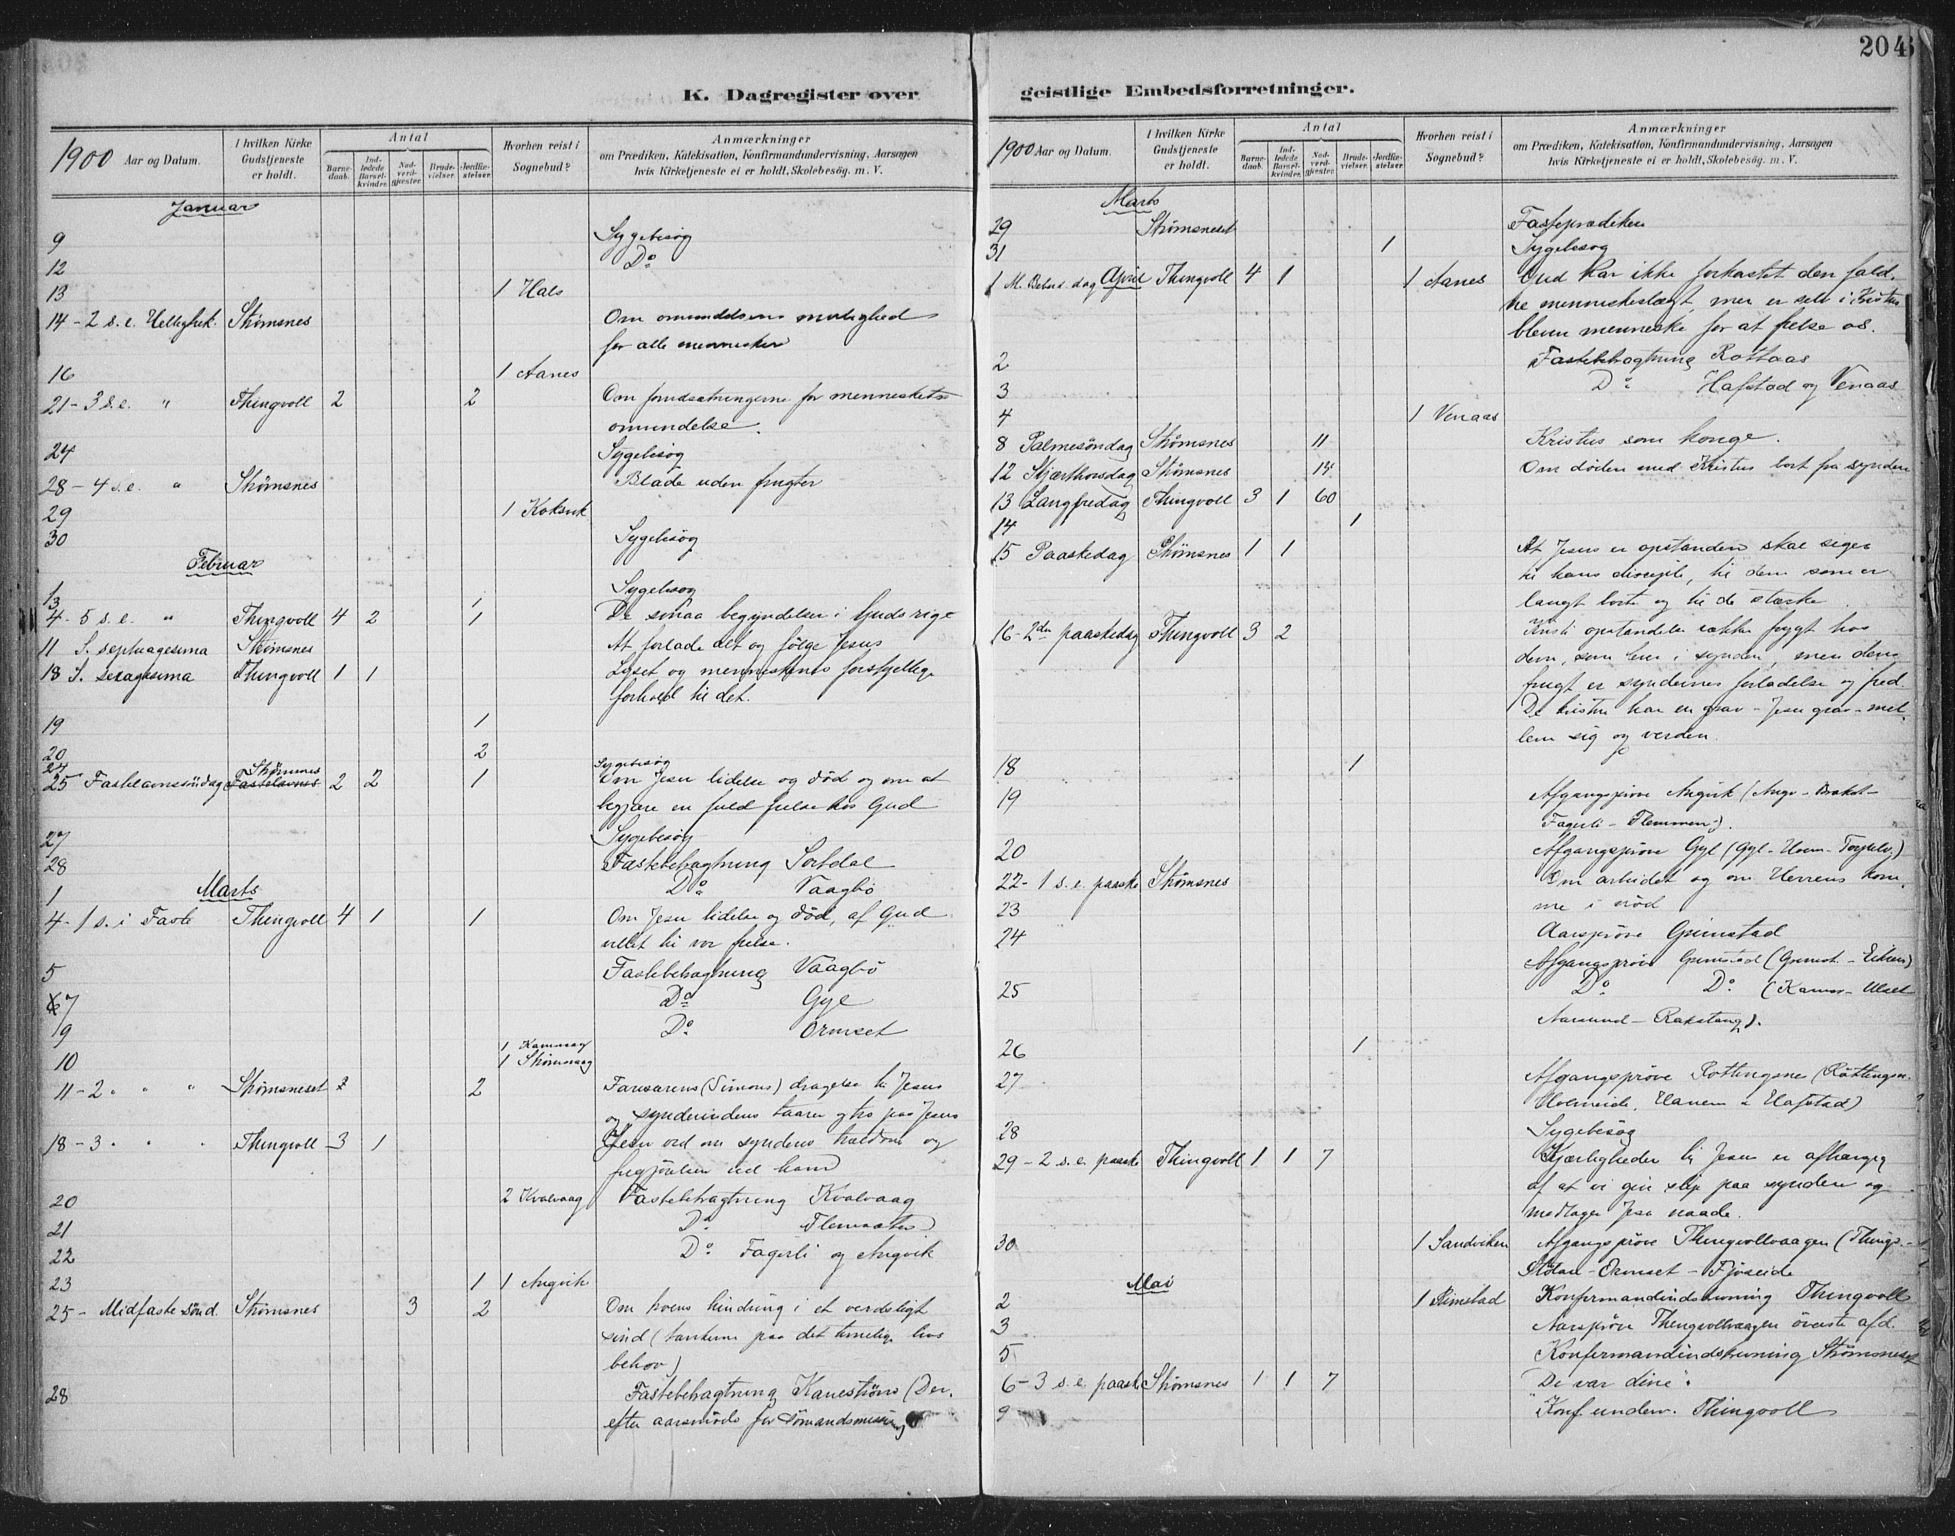 204
K. Dagregister over
1900 Aar og Datum.
I hvilken Kirke Gudstjeneste er holdt.
Antal
Barne-daab.
Ind-ledede Barsel-kvinder.
Nad-verd-gjester.
Brude-vielser.
Jordfæ-stelser.
Hvorhen reist i Sognebud?
Anmærkninger
om Prædiken, Katekisation, Konfirmandundervisning, Aarsagen
hvis Kirketjeneste ei er holdt, Skolebesøg. m. V.
Januar
9 Sygebesøg
12 Do
13 1 Hals
14 - 2 s. e. Helligtrek. Strømsnes Om omvendelsens mulighed
for alle mennesker
16 1 Aanes
21 - 3 s. e. " Thingvoll 2 2 Om forudsætningerne for menneskets
omvendelse.
24 Sygebesøg
28 - 4 s. e. " Strømsnes Blade uden frugter
29 1 Koksvik
30 Sygebesøg
Februar
13 1 Sygebesøg
4 - 5 s. e. " Thingvoll 4 2 1 De smaa begyndelser i Guds rige
11 S. septuagesima Strømsnes At forlade alt og følge Jesus
18 S. sexagesima Thingvoll 1 1 Lyset og menneskenes forskjellige
forhold til det.
19 1
20 2
24 Sygebesøg
25 Fastelavnssöndag Strømsnes 2 2 1 Om Jesu lidelse og död og om at
begjære en fuld frelse hos Gud
27 Sygebesøg
28 Fastebetragtning Sortdal
Marts
1 Do Vaagbö
4 - 1 s. i Faste Thingvoll 4 1 1 Om Jesu lidelse og död, af Gud
villet til vor frelse.
5 Fastebetragtning Vaagbö
7 Do Gyl
9 Do Ormset
10 1
1 Strømsvaag
11 - 2 " " " Strømsneset 2 Farisæerens (Simons) dragelse til Jesus
og synderindens taarer og tro paa Jesus
18 - 3 " " " Thingvoll 3 1 Jesu ord om syndens trældom og
frigjörelsen ved ham
20 2 Kvalvaag Fastebetragtning Kvalvaag
21 Do
22 Do Fagerli og Angvik
23 1 1 Angvik
25 - Midfaste sönd. Strømsnes 3 2 Om troens hindring i et verdsligt
sind (tankerne paa det timelige livs
behov)
28 Fastebetragtning Kaneström (Der-
efter aarsmöde for sömandsmission
geistlige Embedsforretninger.
1900 Aar og Datum.
I hvilken Kirke Gudstjeneste er holdt.
Antal
Barne-daab.
Ind-ledede Barsel-kvinder.
Nad-verd-gjester.
Brude-vielser.
Jordfæ-stelser.
Hvorhen reist i Sognebud?
Anmærkninger
om Prædiken, Katekisation, Konfirmandundervisning, Aarsagen
hvis Kirketjeneste ei er holdt, Skolebesøg. m. V.
Marts
29 Strømsneset Fasteprædiken
31 1 Sygebesøg
1 M. Beb. dag April Thingvoll 4 1 1 Aanes Gud har ikke forkastet den fald-
ne menneskeslægt, men er selv i Kristus
bleven menneske for at frelse os.
2 Fastebetragtning Rottaas
3 Do Hafstad og Venaas
4 1 Venaas
8 Palmesöndag Strømsnes 11 Kristus som konge.
12 Skjærthorsdag Strømsnes 14 Om döden med Kristus bort fra synden
13 Langfredag Thingvoll 3 1 60
14 1
15 Paaskedag Strømsnes 1 1 At Jesus er opstanden skal siges
til hans disciple, til dem som er
langt borte og til de stærke.
16 - 2den paaskedag Thingvoll 3 2 Kristi opstandelse vækker frygt hos
dem, som lever i synden, men dens
frugt er syndernes forladelse og fred.
De kristne har en grav - Jesu grav - mel-
lem sig og verden.
18 1
19 Afgangspröve Angvik (Angv - Brøkst -
Fagerli - Flemmen).
20 Afgangspröve Gyl (Gyl - Hvem - Torjulv.)
22 - 1 s. e. paaske Strømsnes Om arbeidet og om Herrens kom-
23 me i nöd
24 Aarspröve Grimstad
Afgangspröve Grimstad (Grimst. - Eikrem)
25 Do Do (Kamsv - Ulset
Aarsund - Rakstang).
26 1
27 Afgangspröve Rottingsnes (Röttingsn.
Holmeide, Hanem & Hafstad)
28 Sygebesøg
29 - 2 s. e. paaske Thingvoll 1 1 7 Kjærligheden til Jesus er afhængig
af at vi giver slip paa synden og
modtager Jesu naade.
30 1 Sandviken Afgangspröve Thingvollvaagen (Things-
- Ormset - Fjöseide
Mai
2 1 Rimstad Konfirmandundervisning Thingvoll
3 Aarspröve Thingvollvaagen överste afd.
5 Konfirmandundervisning Strømsneset
6 - 3 s. e. paaske Strømsnes 1 1 7 "De var dine".
9 Konf. underv. Thingvoll